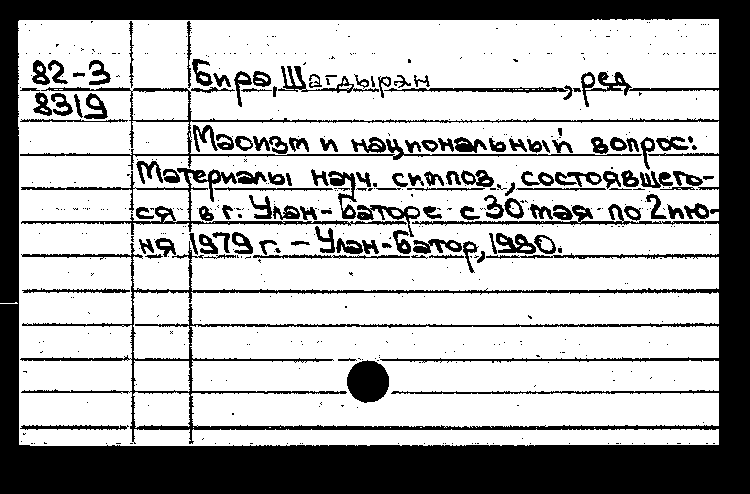 82-3 Бира, Шагдырэн, ред
8319
Маоизм и национальный вопрос:
Материалы науч. симпоз., состоявшего-
ся в г. Улан-Баторе с 30 мая по 2 ию-
ня 1979 г. – Улан-Батор, 1980.